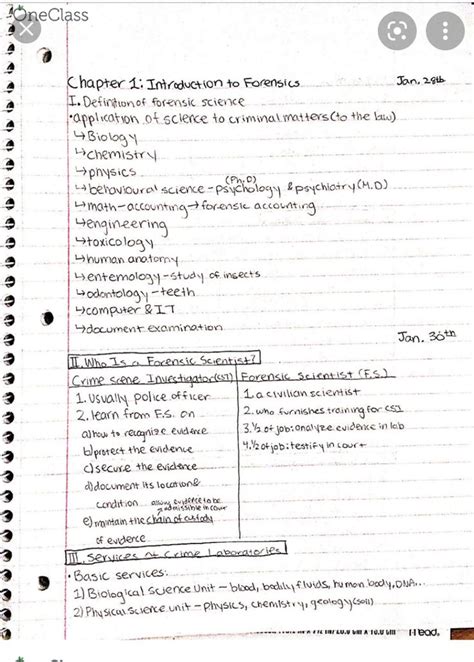 OneClass
Chapter 1: Introduction to Forensics Jan. 28th
I. Definition of forensic science
•application of science to criminal matters (to the law)
↳Biology
↳chemistry
↳physics
↳behavioural science - psychology (Ph.D) & psychiatry (M.D)
↳math - accounting → forensic accounting
↳engineering
↳toxicology
↳human anatomy
↳entemology - study of insects
↳odontology - teeth
↳computer & IT
↳document examination
Jan. 30th
II. Who Is a Forensic Scientist?
Crime Scene Investigator (CSI) Forensic Scientist (F.S.)
1. Usually police officer 1. a civilian scientist
2. learn from F.S. on 2. who furnishes training for CSI
a) how to recognize evidence 3. ½ of job: analyze evidence in lab
b) protect the evidence 4. ½ of job: testify in court
c) secure the evidence
d) document its location &
condition allows evidence to be admissible in court
e) maintain the chain of custody
of evidence
III. Services of Crime Laboratories
• Basic services:
1) Biological Science Unit - blood, bodily fluids, human body, DNA...
2) Physical Science unit - physics, chemistry, geology (soil)